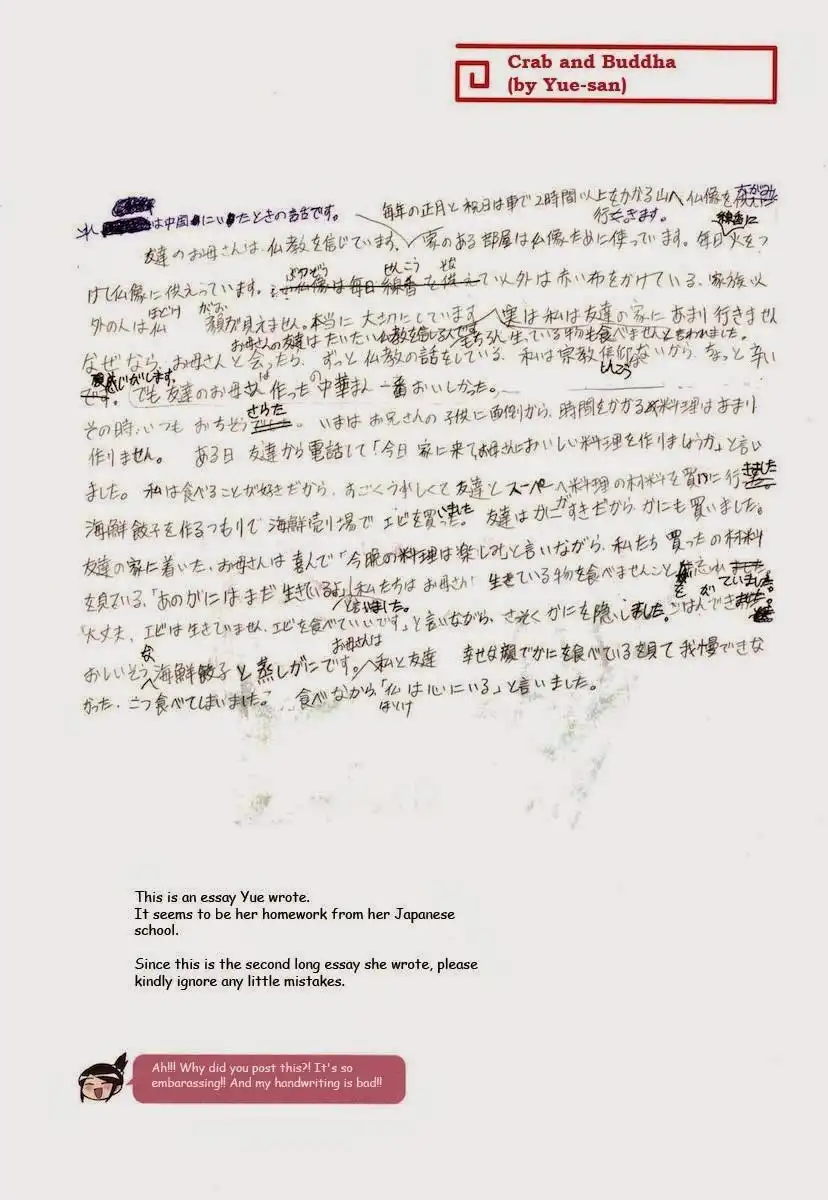 Crab and Buddha
(by Yue-san)
は中国にいたときの話です。 毎年の正月と祝日は車で2時間以上をかかる山へ仏像を
行きます。
線香に
友達のお母さんは、仏教を信じています。家のある部屋は仏像ために使っています。毎日火をつ
ぶつぞう せんこう そな
けし仏像に供えっています。仏像は毎日線香を供えて以外は赤い布をかけている、家族以
ほとけ がお
外の人は仏 顔が見えません。本当に大切にしています 実は私は友達の家にあまり行きません
お母さんの友達はだいたい仏教を信じるんです。もちろん生っている物も食べませんと言われました。
なぜなら、お母さんと会ったら、ずっと仏教の話をしている、私は宗教信仰ないから、ちょっと辛い
感じがします。 は の しんこう
です。でも友達のお母さん作った中華まん一番おいしかった。
さらた
その時、いつもおちそうでした。いまはお兄さんの子供に面倒から、時間をかかる料理はあまり
作りません。 ある日 友達から電話して「今日家に来てお母さんにおいしい料理を作りましょうか」と言い
ました。私は食べることが好きだから、すごくうれしくて友達とスーパーへ料理の材料を買いに行きました
海鮮餃子を作るつもりで海鮮売り場でエビを買いました。友達はかにがすきだから、かにも買いました。
友達の家に着いた、お母さんは喜んで「今晩の料理は楽しむと言いながら、私たち買ったの材料
を見ている、「あのがにはまだ生きているよ」私たちはお母さん 生きている物を食べませんこと を忘れ
と言いました。 が ていました。
「大丈夫、エビは生きていません、エビを食べていいです」と言いながら、さそくかにを隠しました。ごはんできました。
な お母さんは
おしいそう海鮮餃子と蒸しがにです。私と友達 幸せな顔でかにを食べているを見て我慢できな
かった、二つ食べてしまいました。 食べながら「仏は心にいる」と言いました。
ほとけ
This is an essay Yue wrote.
It seems to be her homework from her Japanese
school.
Since this is the second long essay she wrote, please
kindly ignore any little mistakes.
Ah!!! Why did you post this?! It's so
embarassing!! And my handwriting is bad!!